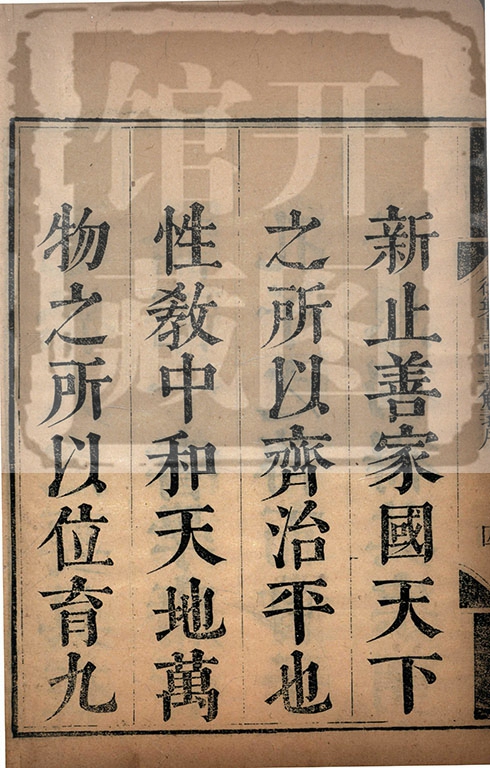 新止善家國天下
之所以齊治平也
性敎中和天地萬
物之所以位育九